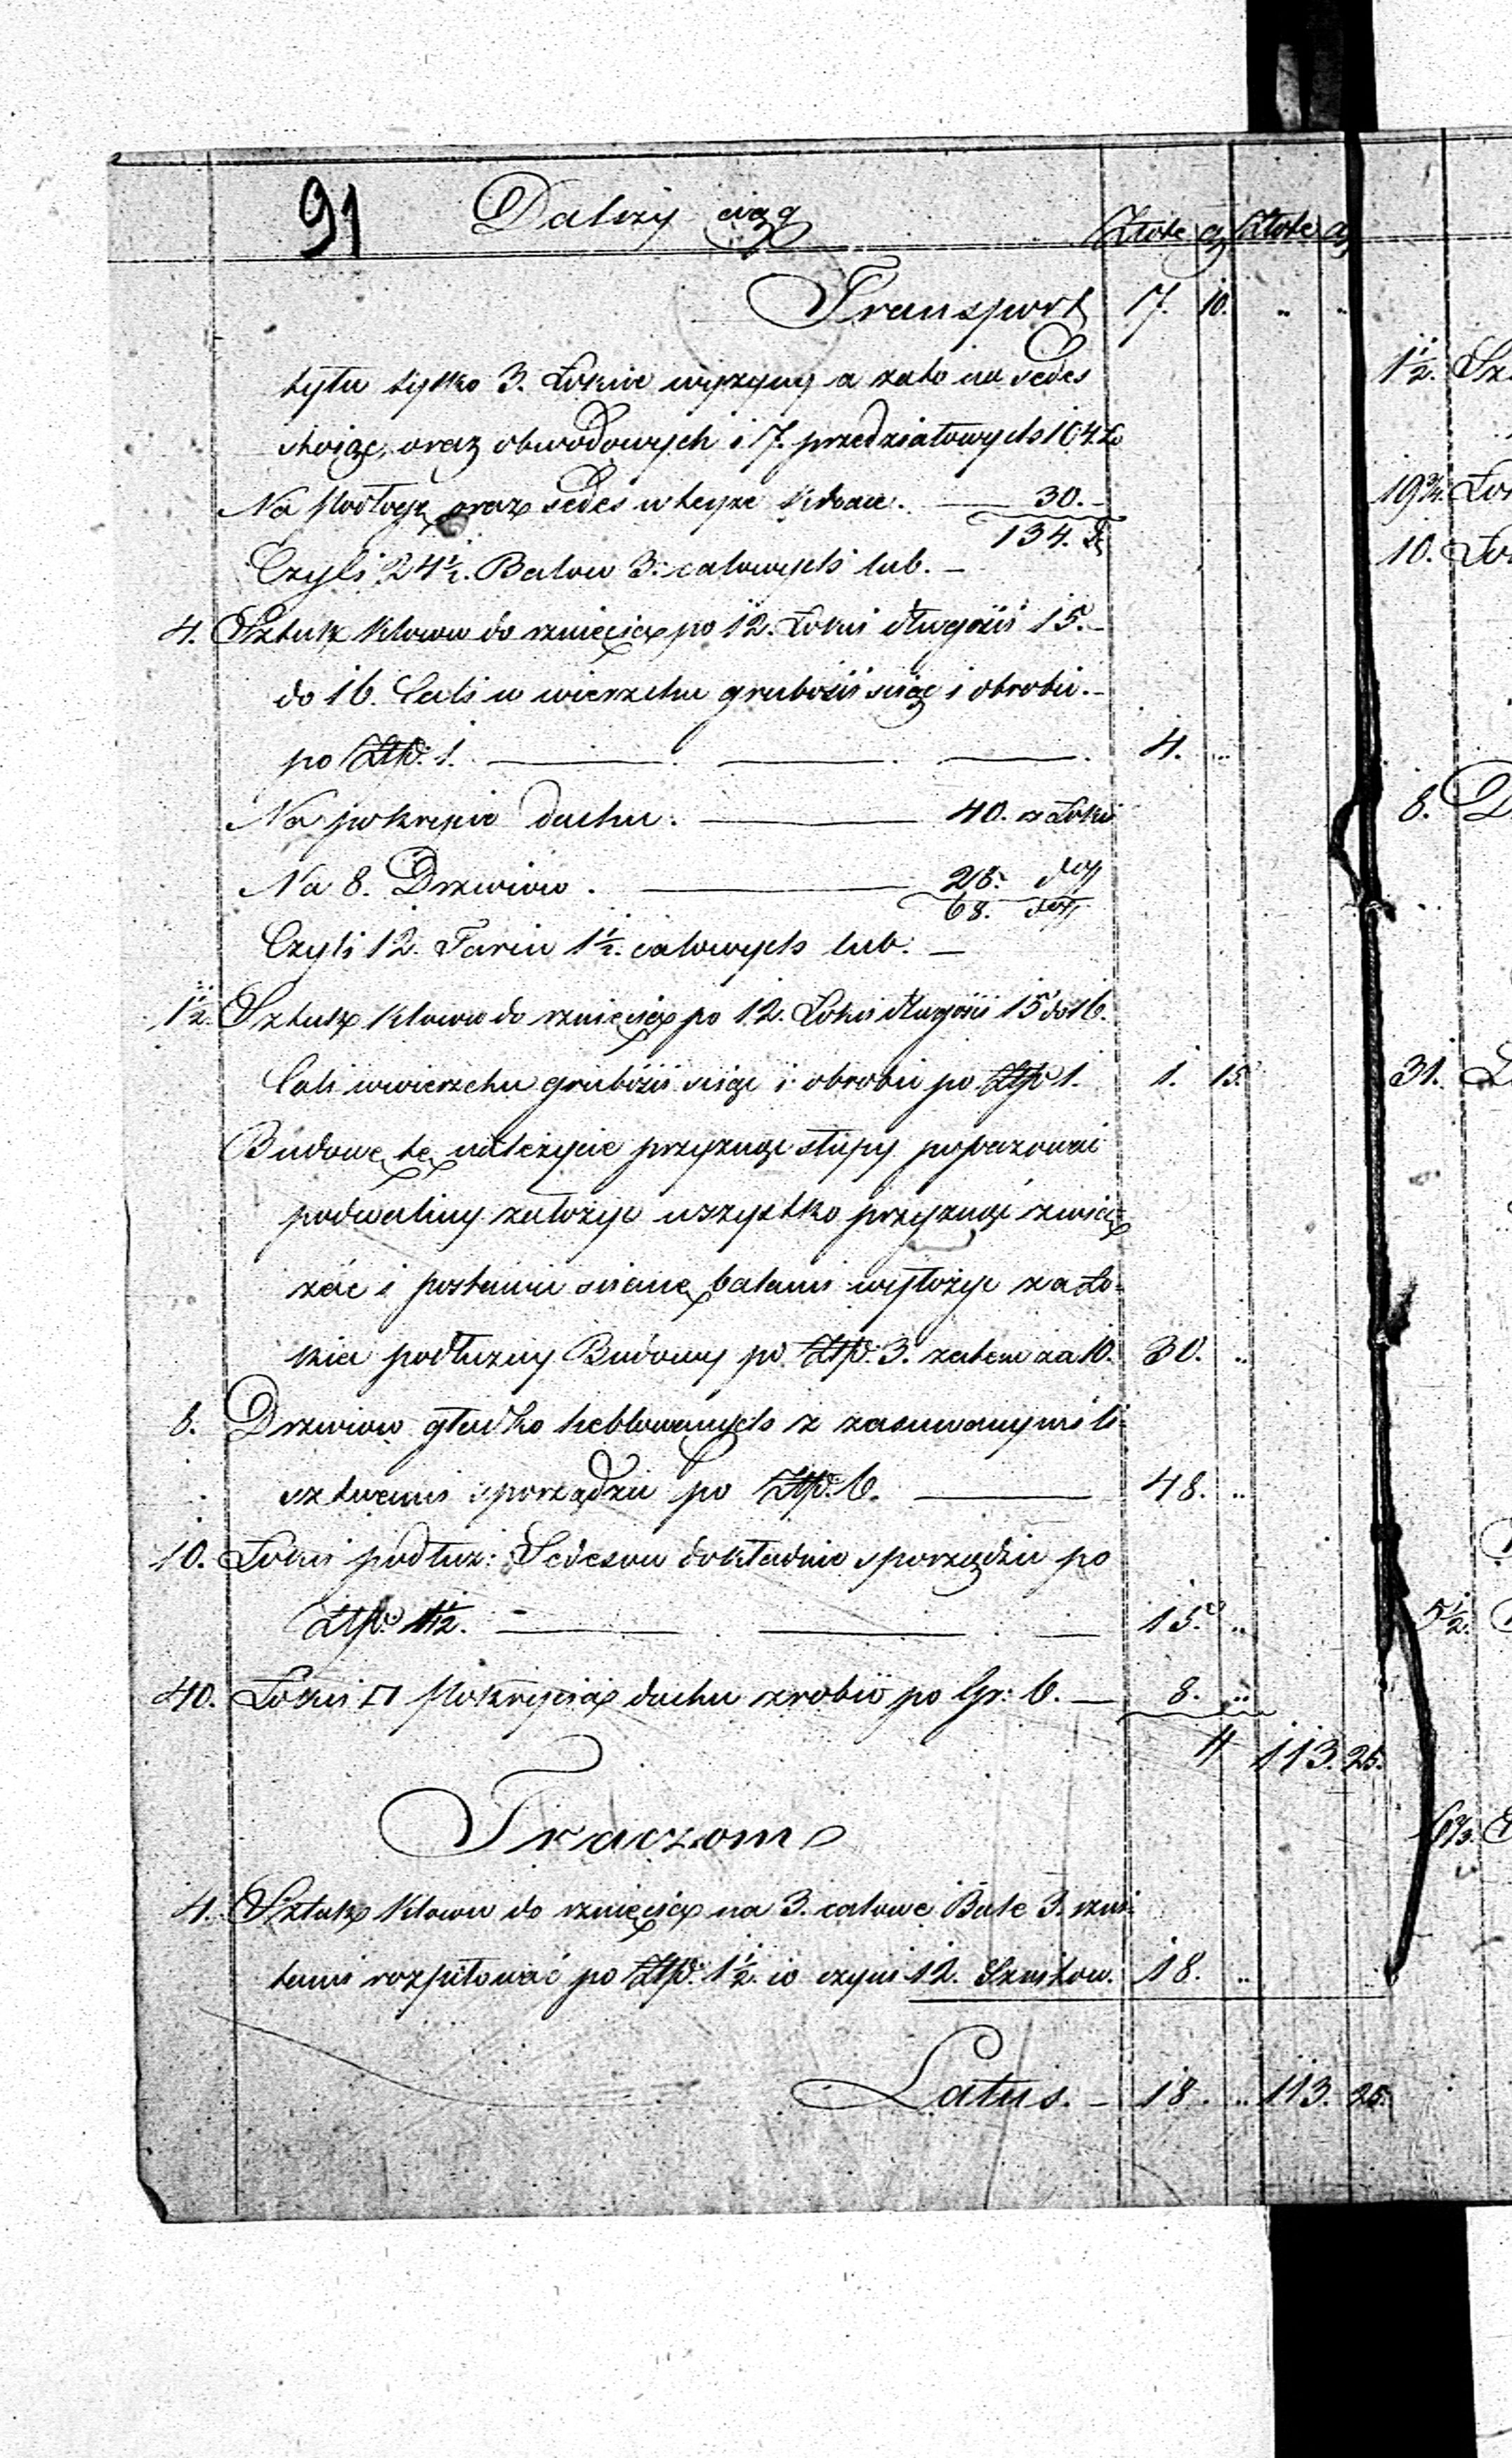 91 Dalszy ciąg Złote gr Złote gr
Transport 17. 10. " "
tyłu tylko 3. Łokcie wyżyny a zato na sedes
oraz obwodowych i 7. przedziałowych 104. Ło
Na Podłogę oraz sedes w teyże kloace. — 30. –
134. D
Czyli 24½. Balow 3. calowych lub. –
4. Sztuk Klocow do rznięcia po 12. Łokci długości 15. –
do 16. Cali w wierzchu grubości ściąć i obrobić. –
po Złp. 1. — — — 4. "
Na pokrycie dachu. — 40. □ Łokci
Na 8. Drzwiow. — 28. detto
68. detto
Czyli 12. Tarcic 1½. calowych lub. –
1½. Sztuk Klocow do rznięcia po 12. Łokci długości 15 do 16.
Cali w wierzchu grubości ściąć i obrobić po Złp 1. 1. 15.
Budowę tę należycie przyrznąć słupy popazować
podwaliny założyć wszystko przyrznąć zwią-
zać i postawić ścianę balami wyłożyć za Ło-
kieć podłużny Budowy po Złp. 3. zatem za 10. 30. "
8. Drzwiow gładko heblowanych z zasuwanymi li-
sztwami sporządzić po Złp. 6. — 48. "
10. Łokci podłuż: Sedesow dokładnie sporządzić po
Złp. 1½. — — — 15. "
40. Łokci □ Pokrycia dachu zrobić po Gr: 6. — 8. "
113. 25.
Traczom
4. Sztuk Klocow do rznięcia na 3. calowe Bale 3. szni-
tami rozpiłować po Złp. 1½. co czyni 12. Sznitow. 18. "
Latus. – 18. " 113. 25.
1½. Sz
19¾. Ło
10. Ło
8. D
31. Ł
5½.
6⅔.